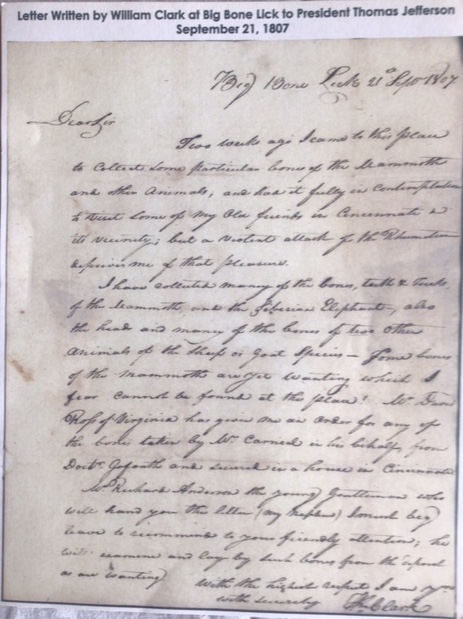 Letter Written by William Clark at Big Bone Lick to President Thomas Jefferson
September 21, 1807
Big Bone Lick 21st Sept 1807
Dear Sir
Two weeks ago I came to this place
to collect some particular bones of the Mammoth
and other Animals; and had it fully in contemplation
to visit some of my Old friends in Cincinnati &
its vicinity; but a violent attack of the Rhumatism
deprives me of that pleasure.
I have collected many of the bones, teeth & Tusks,
of the Mammoth, and the Siberian Elephant, also
the head and many of the bones of two other
Animals of the Sheep or Goat Species — Some bones
of the Mammoth are yet wanting which I
fear cannot be found at this place! Mr. David
Ross of Virginia has given me an order for any of
the bones taken by Mr. in his behalf, from
Doctr. Goforth and secured in a house in Cincinnati
Mr. Richard Anderson the young Gentleman who
will hand you this letter (my Nephew) I must beg
leave to recommend to your friendly attention; he
will examine and lay by such bones from the deposit
as are wanting
With the highest respect I am yrs
with sincerity Wm Clark